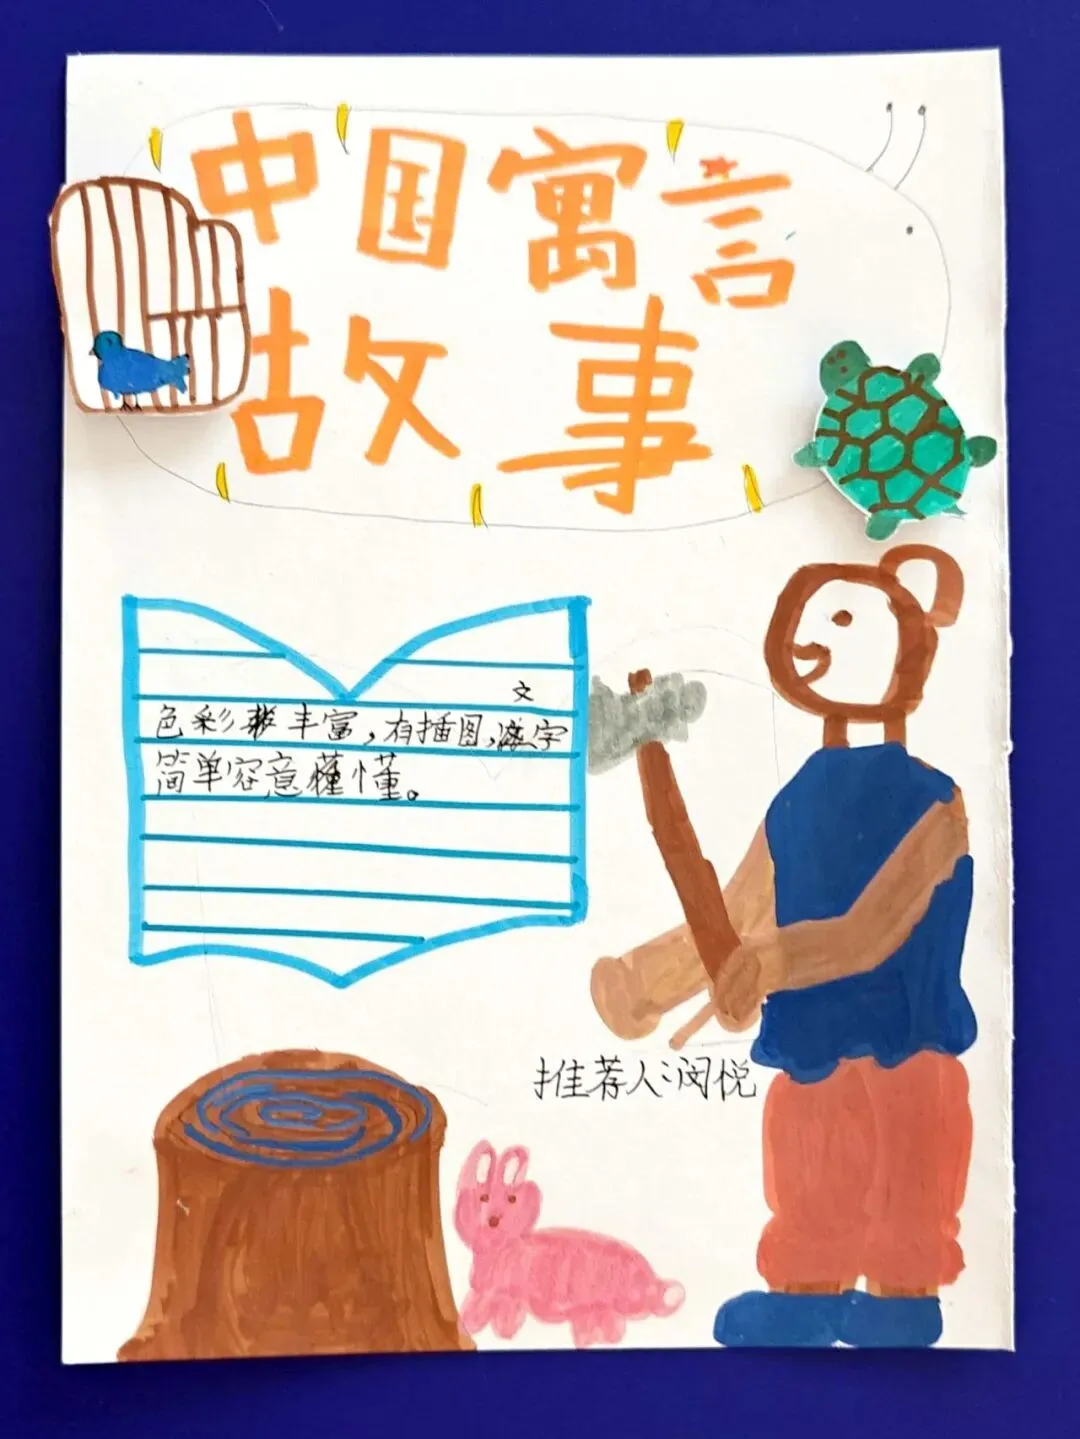 中国寓言
故事
色彩丰富，有插图，文字
简单容意懂。
推荐人：润悦